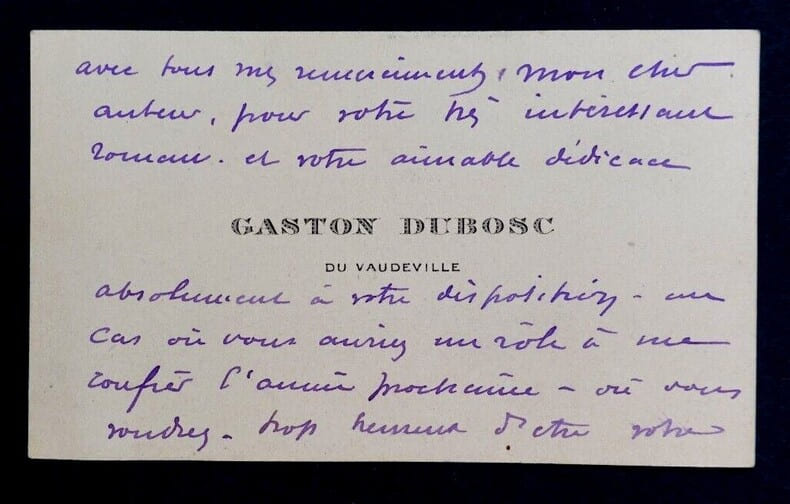 avec tous mes remerciements, mon cher
auteur, pour votre très intéressant
roman. et votre aimable dédicace
GASTON DUBOSC
DU VAUDEVILLE
absolument à votre disposition - au
cas où vous auriez un rôle à me
confier l'année prochaine - où vous
voudrez - trop heureux d'être votre